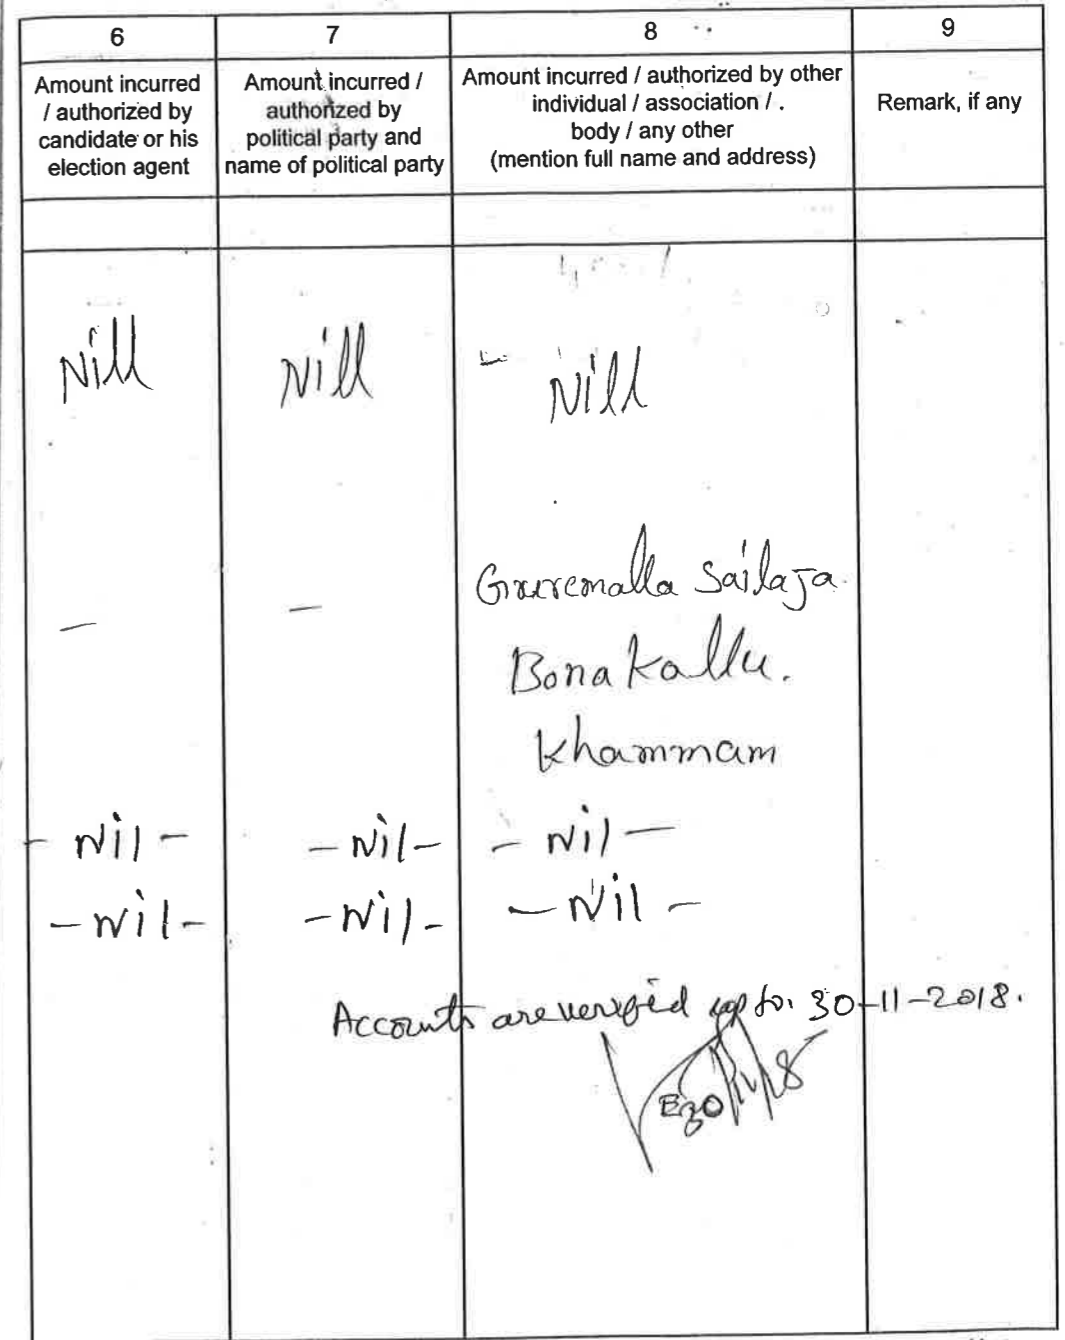 6 7 8 9
Amount incurred / authorized by candidate or his election agent
Amount incurred / authorized by political party and name of political party
Amount incurred / authorized by other individual / association / . body / any other (mention full name and address)
Remark, if any
Nill Nill Nill
Sailaja
— — Bonakallu.
Khammam
- Nil - - Nil - - Nil -
- Nil - - Nil - - Nil -
Accounts are verified up to. 30-11-2018.